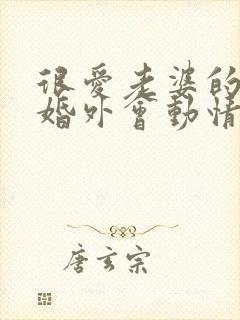 很愛老婆的
婚外會動情
唐玄宗